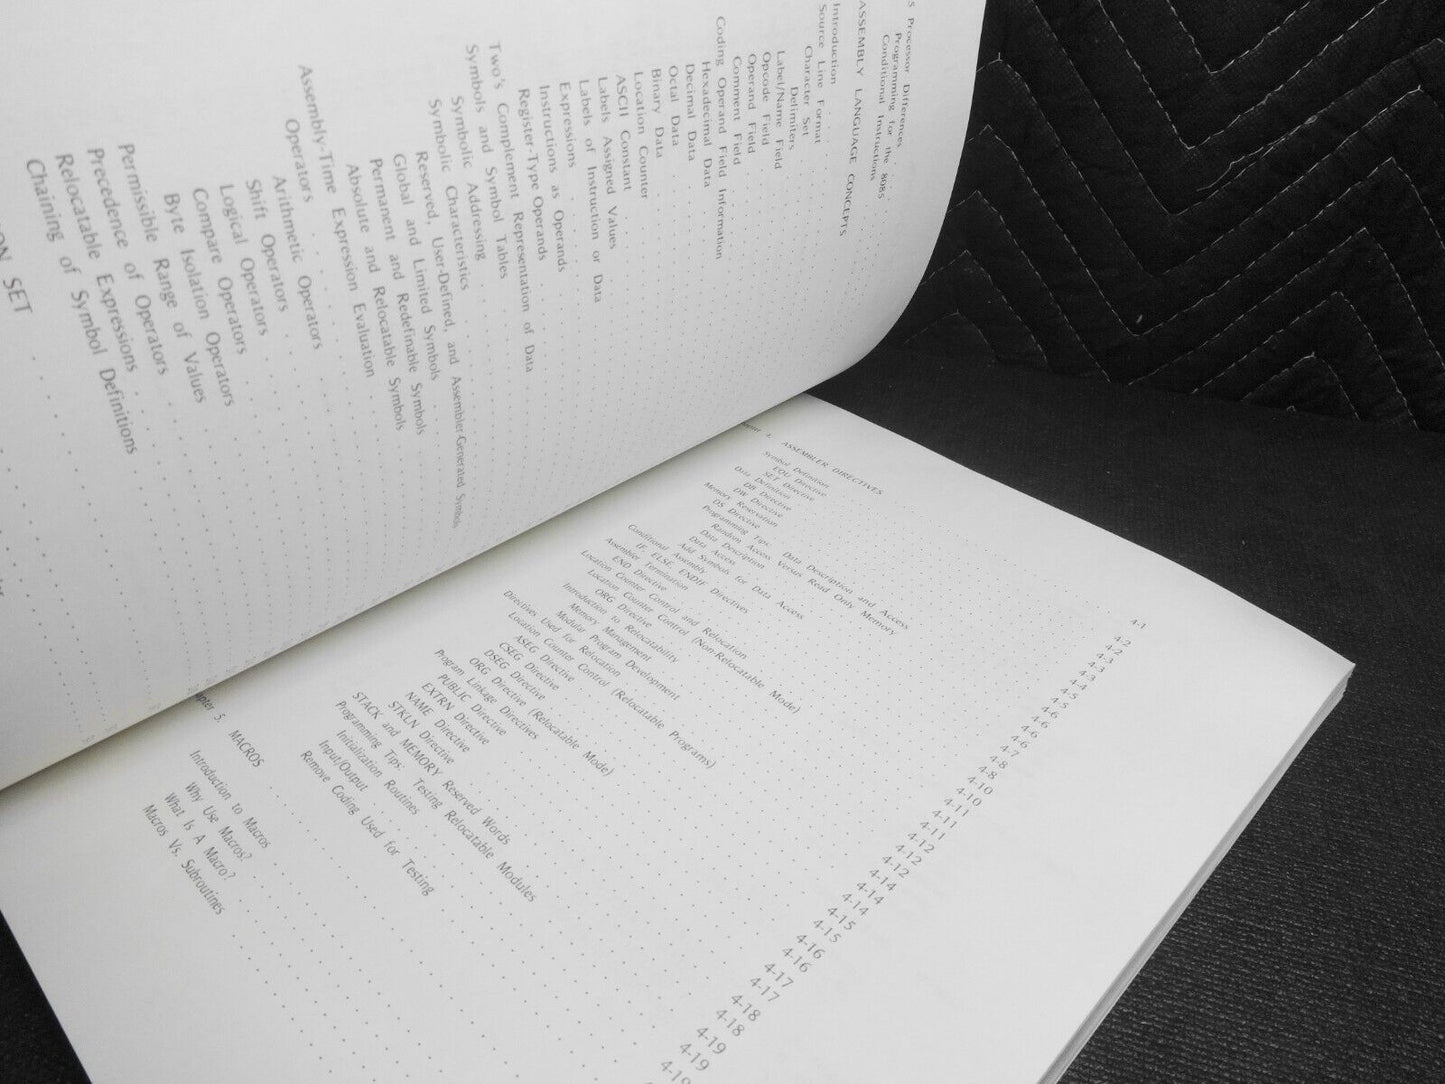 5 Processor Differences . . . .
Programming for the 8085
Conditional Instructions . . . .
ASSEMBLY LANGUAGE CONCEPTS
Introduction . . . .
Source Line Format
Character Set . . . .
Delimiters
Label/Name Field
Opcode Field
Operand Field
Comment Field
Coding Operand Field Information
Hexadecimal Data
Decimal Data
Octal Data
Binary Data
Location Counter
ASCII Constant
Labels Assigned Values
Labels of Instruction or Data
Expressions
Instructions as Operands
Register-Type Operands
Two's Complement Representation of Data
Symbols and Symbol Tables
Symbolic Addressing
Symbolic Characteristics
Reserved, User-Defined, and Assembler-Generated Symbols
Global and Limited Symbols
Permanent and Redefinable Symbols
Absolute and Relocatable Symbols
Assembly-Time Expression Evaluation
Operators
Arithmetic Operators
Shift Operators
Logical Operators
Compare Operators
Byte Isolation Operators
Permissible Range of Values
Precedence of Operators
Relocatable Expressions
Chaining of Symbol Definitions
ON SET
4. ASSEMBLER DIRECTIVES
Symbol Definition
EQU Directive
SET Directive
Data Definition
DB Directive
DW Directive
Memory Reservation
DS Directive
Programming Tips: Data Description and Access
Random Access Versus Read Only Memory
Data Description
Data Access
Add Symbols for Data Access
Conditional Assembly
IF, ELSE, ENDIF Directives
Assembler Termination
END Directive
Location Counter Control and Relocation
Location Counter Control (Non-Relocatable Mode)
ORG Directive
Introduction to Relocatability
Memory Management
Modular Program Development
Directives Used for Relocation
Location Counter Control (Relocatable Programs)
ASEG Directive
CSEG Directive
DSEG Directive
ORG Directive (Relocatable Mode)
Program Linkage Directives
PUBLIC Directive
EXTRN Directive
NAME Directive
STKLN Directive
STACK and MEMORY Reserved Words
Programming Tips: Testing Relocatable Modules
Initialization Routines
Input/Output
Remove Coding Used for Testing
Chapter 5. MACROS
Introduction to Macros
Why Use Macros?
What Is A Macro?
Macros Vs. Subroutines
4-1
4-2
4-2
4-3
4-3
4-3
4-4
4-5
4-5
4-6
4-6
4-6
4-6
4-7
4-8
4-8
4-10
4-10
4-11
4-11
4-12
4-12
4-12
4-14
4-14
4-14
4-15
4-15
4-16
4-16
4-17
4-17
4-18
4-18
4-19
4-19
4-19